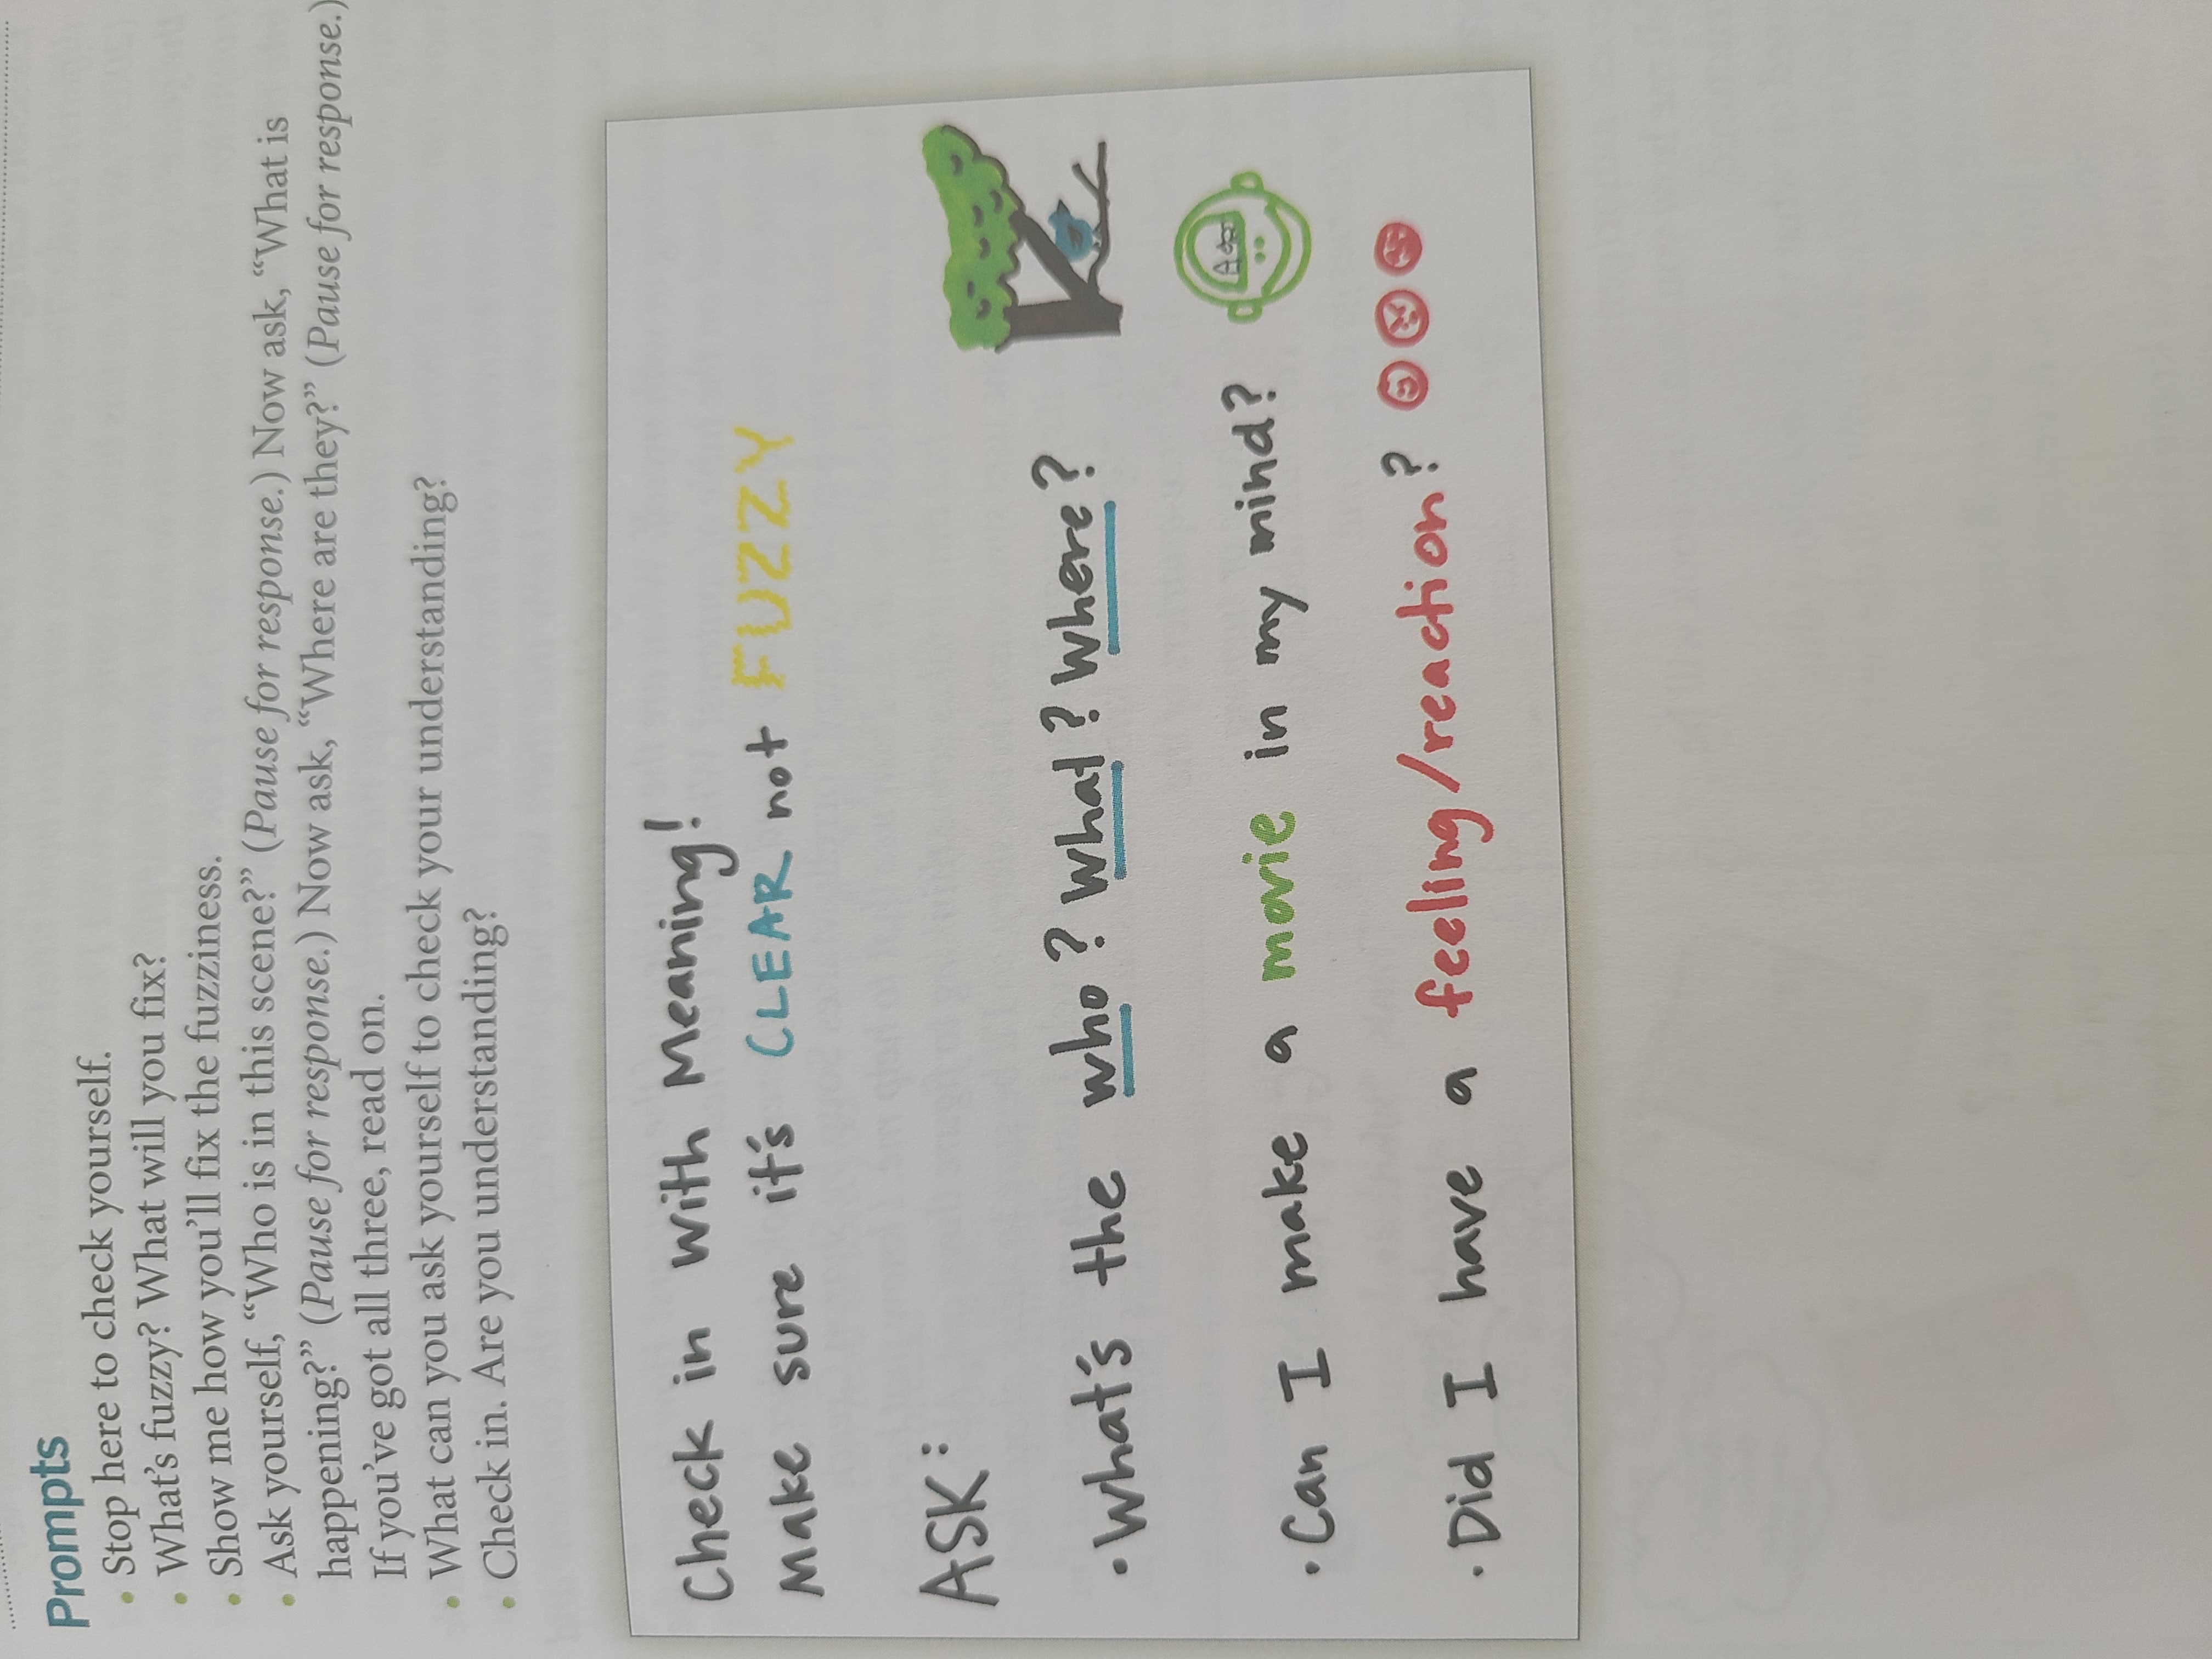 Prompts
• Stop here to check yourself.
• What's fuzzy? What will you fix?
• Show me how you'll fix the fuzziness.
• Ask yourself, “Who is in this scene?” (Pause for response.) Now ask, “What is
happening?” (Pause for response.) Now ask, “Where are they?” (Pause for response.)
If you've got all three, read on.
• What can you ask yourself to check your understanding?
• Check in. Are you understanding?
Check in with Meaning!
Make sure it's CLEAR not FUZZY
ASK:
• What's the who? What? Where?
• Can I make a movie in my mind?
• Did I have a feeling/reaction?